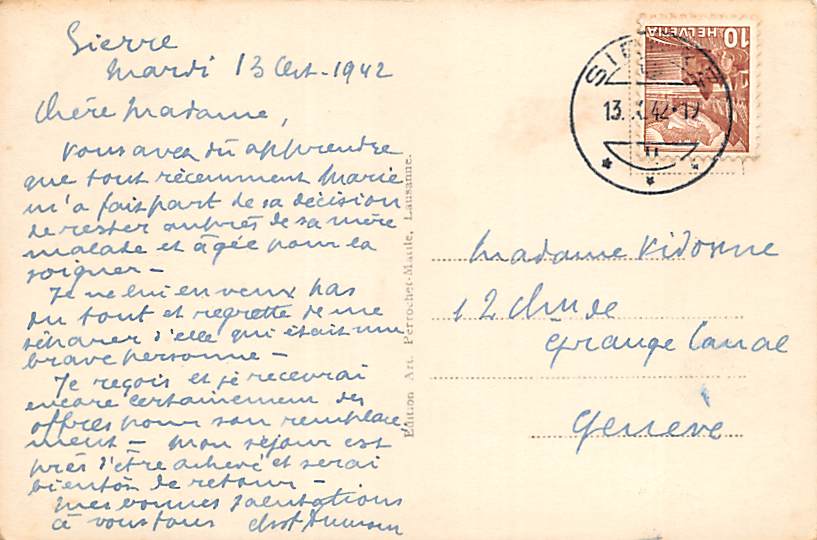 Sierre
Mardi 13 Oct. 1942
Chère Madame,
Vous avez dû apprendre
que tout récemment Marie
m'a fait part de sa décision
de rester auprès de sa mère
malade et âgée pour la
soigner –
Je ne lui en veux pas
du tout et regrette de me
séparer d'elle qui était une
brave personne –
Je reçois et je recevrai
encore certainement des
offres pour son remplace-
ment – mon séjour est
près d'être achevé et serai
bientôt de retour –
Mes bonnes salutations
à vous tous
Edition Art. Perrochet-Matile, Lausanne.
HELVETIA 10
SIERRE
13. X. 42-12
Madame Vidonne
12 Ch. de
Grange Canal
Genève